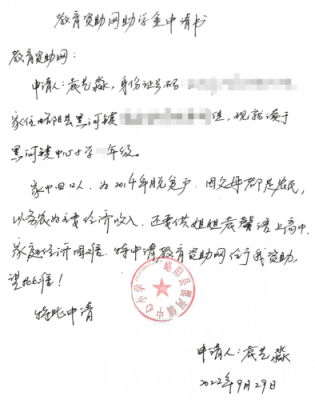 教育资助网助学金申请书
教育资助网：
申请人：袁艺淼，身份证号码
家住略阳县黑河镇 组，现就读于
黑河镇中心小学 年级。
家中四口人，为2014年脱贫户，因父母都是农民，
以务农为主要经济收入，还要供姐姐袁馨读上高中，
家庭经济困难。特申请教育资助网给予我资助，
望批准！
特此申请
略阳县黑河镇中心小学
申请人：袁艺淼
2022年9月29日